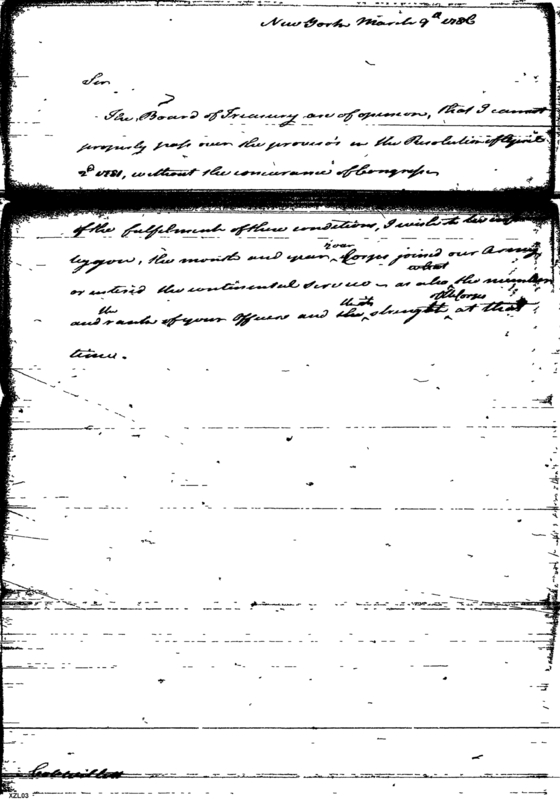 New York March 9th 1786
Sir
The Board of Treasury are of opinion, that I cannot
properly pass over the provisos in the Resolution of April
2d 1781, without the concurrence of Congress
of the fulfilment of these conditions, I wish to be
by you, the month and year your Corps joined our Army
or entered the continental service — as also what the number
and the rank of your Officers and the strength of the Corps at that
time.
XZL03